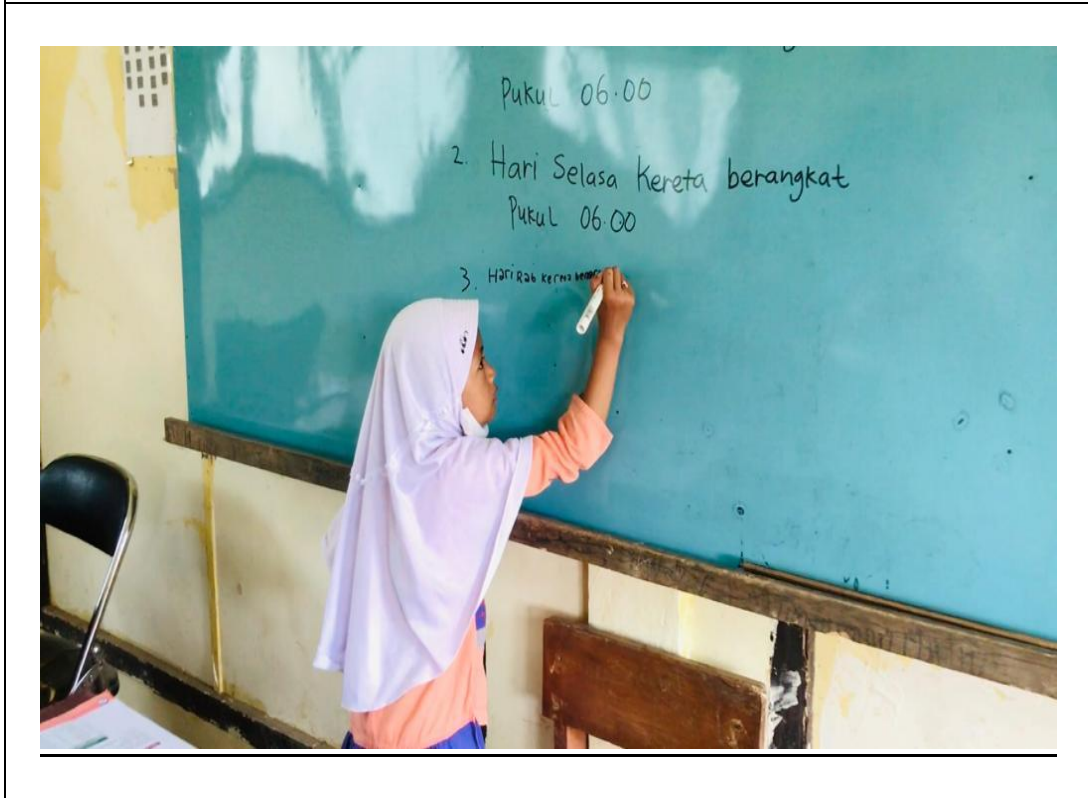 Pukul 06.00
2. Hari Selasa Kereta berangkat
Pukul 06.00
3. Hari Rab kereta